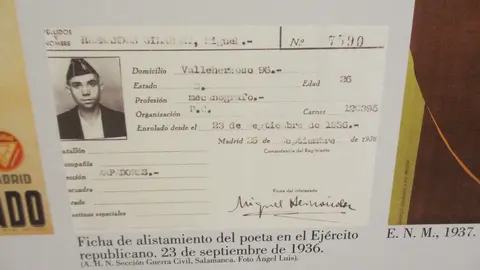 PELLIDOS
NOMBRE HERNANDEZ GILABERT, Miguel.- Nº 7590
Domicilio Vallehermoso 96.-
Estado S. Edad 26
Profesión mecanografo.-
Organización P.C. Carnet 120395
Enrolado desde el 23 de septiembre de 1936.-
Madrid 23 de septiembre de 1936
Comandancia del Regimiento
atallón
ompañía
ección ZAPADORES.-
scuadra
rado
estinos especiales
Firma del interesado
Miguel Hernández
Ficha de alistamiento del poeta en el Ejército
republicano. 23 de septiembre de 1936.
(A. H. N. Sección Guerra Civil, Salamanca. Foto Ángel Luis).
E. N. M., 1937.
ADRID
ADO